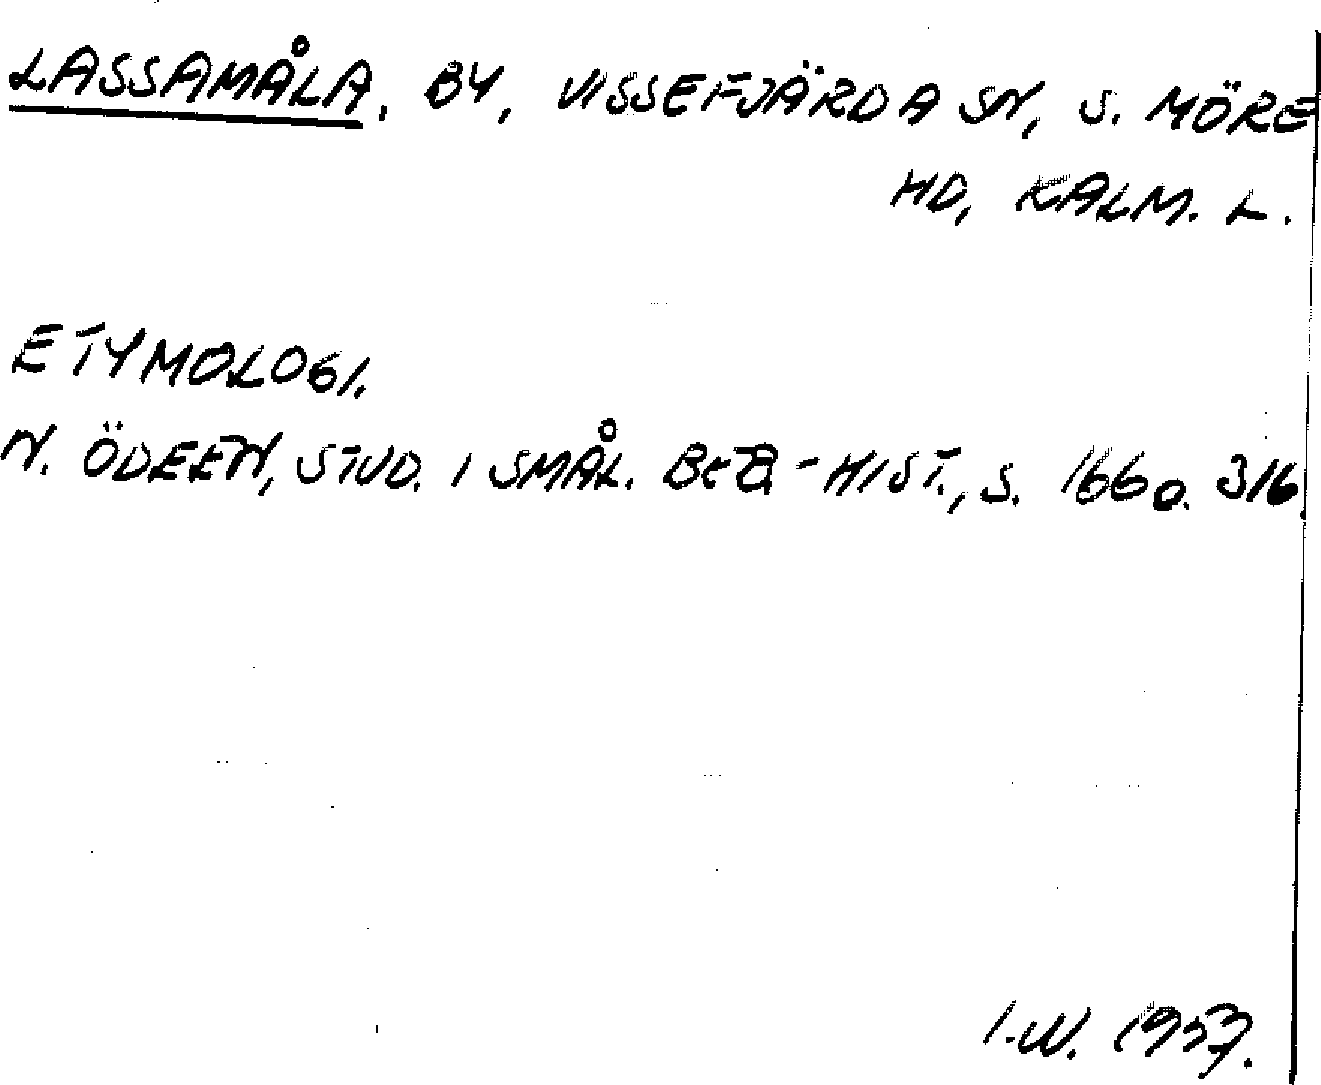 LASSAMÅLA, BY, VISSEFJÄRDA SN, S. MÖRE
HD, KALM. L.
ETYMOLOGI.
N. ÖDEEN, STUD. I SMÅL. BEB.-HIST., S. 166 o. 316.
I.W. 1957.